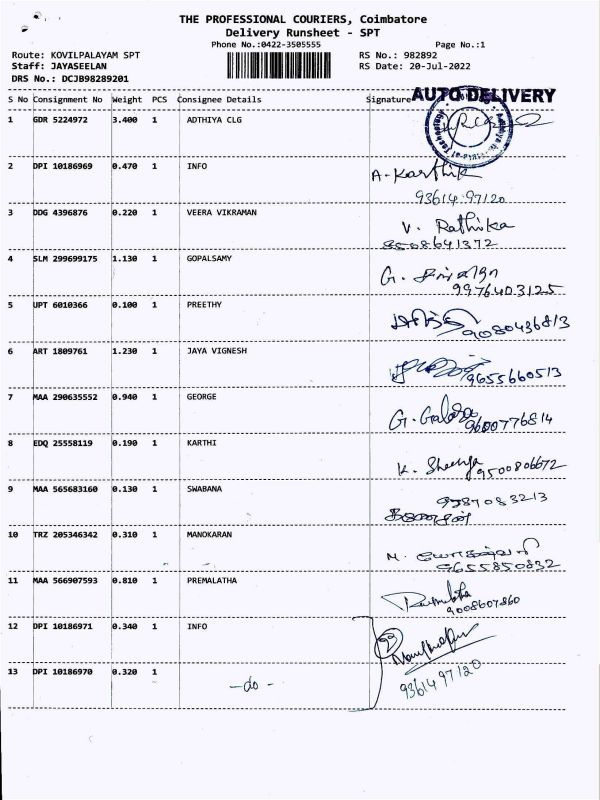 THE PROFESSIONAL COURIERS, Coimbatore
Delivery Runsheet - SPT
Phone No.:0422-3505555 Page No.:1
Route: KOVILPALAYAM SPT RS No.: 982892
Staff: JAYASEELAN RS Date: 20-Jul-2022
DRS No.: DCJB98289201
AUTO DELIVERY
S No Consignment No Weight PCS Consignee Details Signature
1 GDR 5224972 3.400 1 ADTHIYA CLG
2 DPI 10186969 0.470 1 INFO A. Karthik
93614 97120
3 DDG 4396876 0.220 1 VEERA VIKRAMAN V. Rathika
9508641372
4 SLM 299699175 1.130 1 GOPALSAMY G.
9976403125
5 UPT 6010366 0.100 1 PREETHY
9080436813
6 ART 1809761 1.230 1 JAYA VIGNESH
9655660513
7 MAA 290635552 0.940 1 GEORGE G.
9600776814
8 EDQ 25558119 0.190 1 KARTHI K.
9500806672
9 MAA 565683160 0.130 1 SWABANA
10 TRZ 205346342 0.310 1 MANOKARAN M.
9655850832
11 MAA 566907593 0.810 1 PREMALATHA
9008607860
12 DPI 10186971 0.340 1 INFO
13 DPI 10186970 0.320 1 -do-
93614 97120